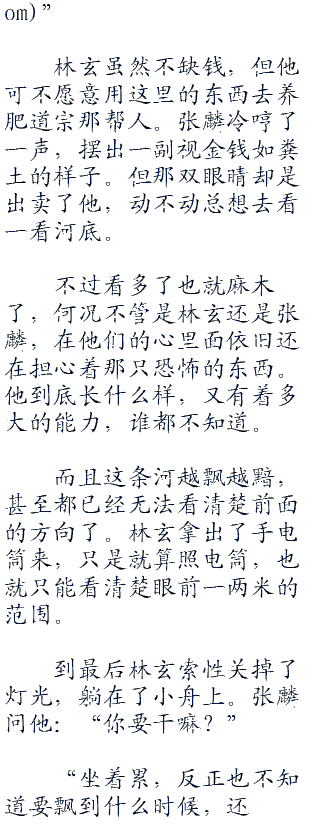 om)”
林玄虽然不缺钱，但他
可不愿意用这里的东西去养
肥道宗那帮人。张麟冷哼了
一声，摆出一副视金钱如粪
土的样子。但那双眼睛却是
出卖了他，动不动总想去看
一看河底。
不过看多了也就麻木
了，何况不管是林玄还是张
麟，在他们的心里面依旧还
在担心着那只恐怖的东西。
他到底长什么样，又有着多
大的能力，谁都不知道。
而且这条河越飘越黯，
甚至都已经无法看清楚前面
的方向了。林玄拿出了手电
筒来，只是就算照电筒，也
就只能看清楚眼前一两米的
范围。
到最后林玄索性关掉了
灯光，躺在了小舟上。张麟
问他：“你要干嘛？”
“坐着累，反正也不知
道要飘到什么时候，还